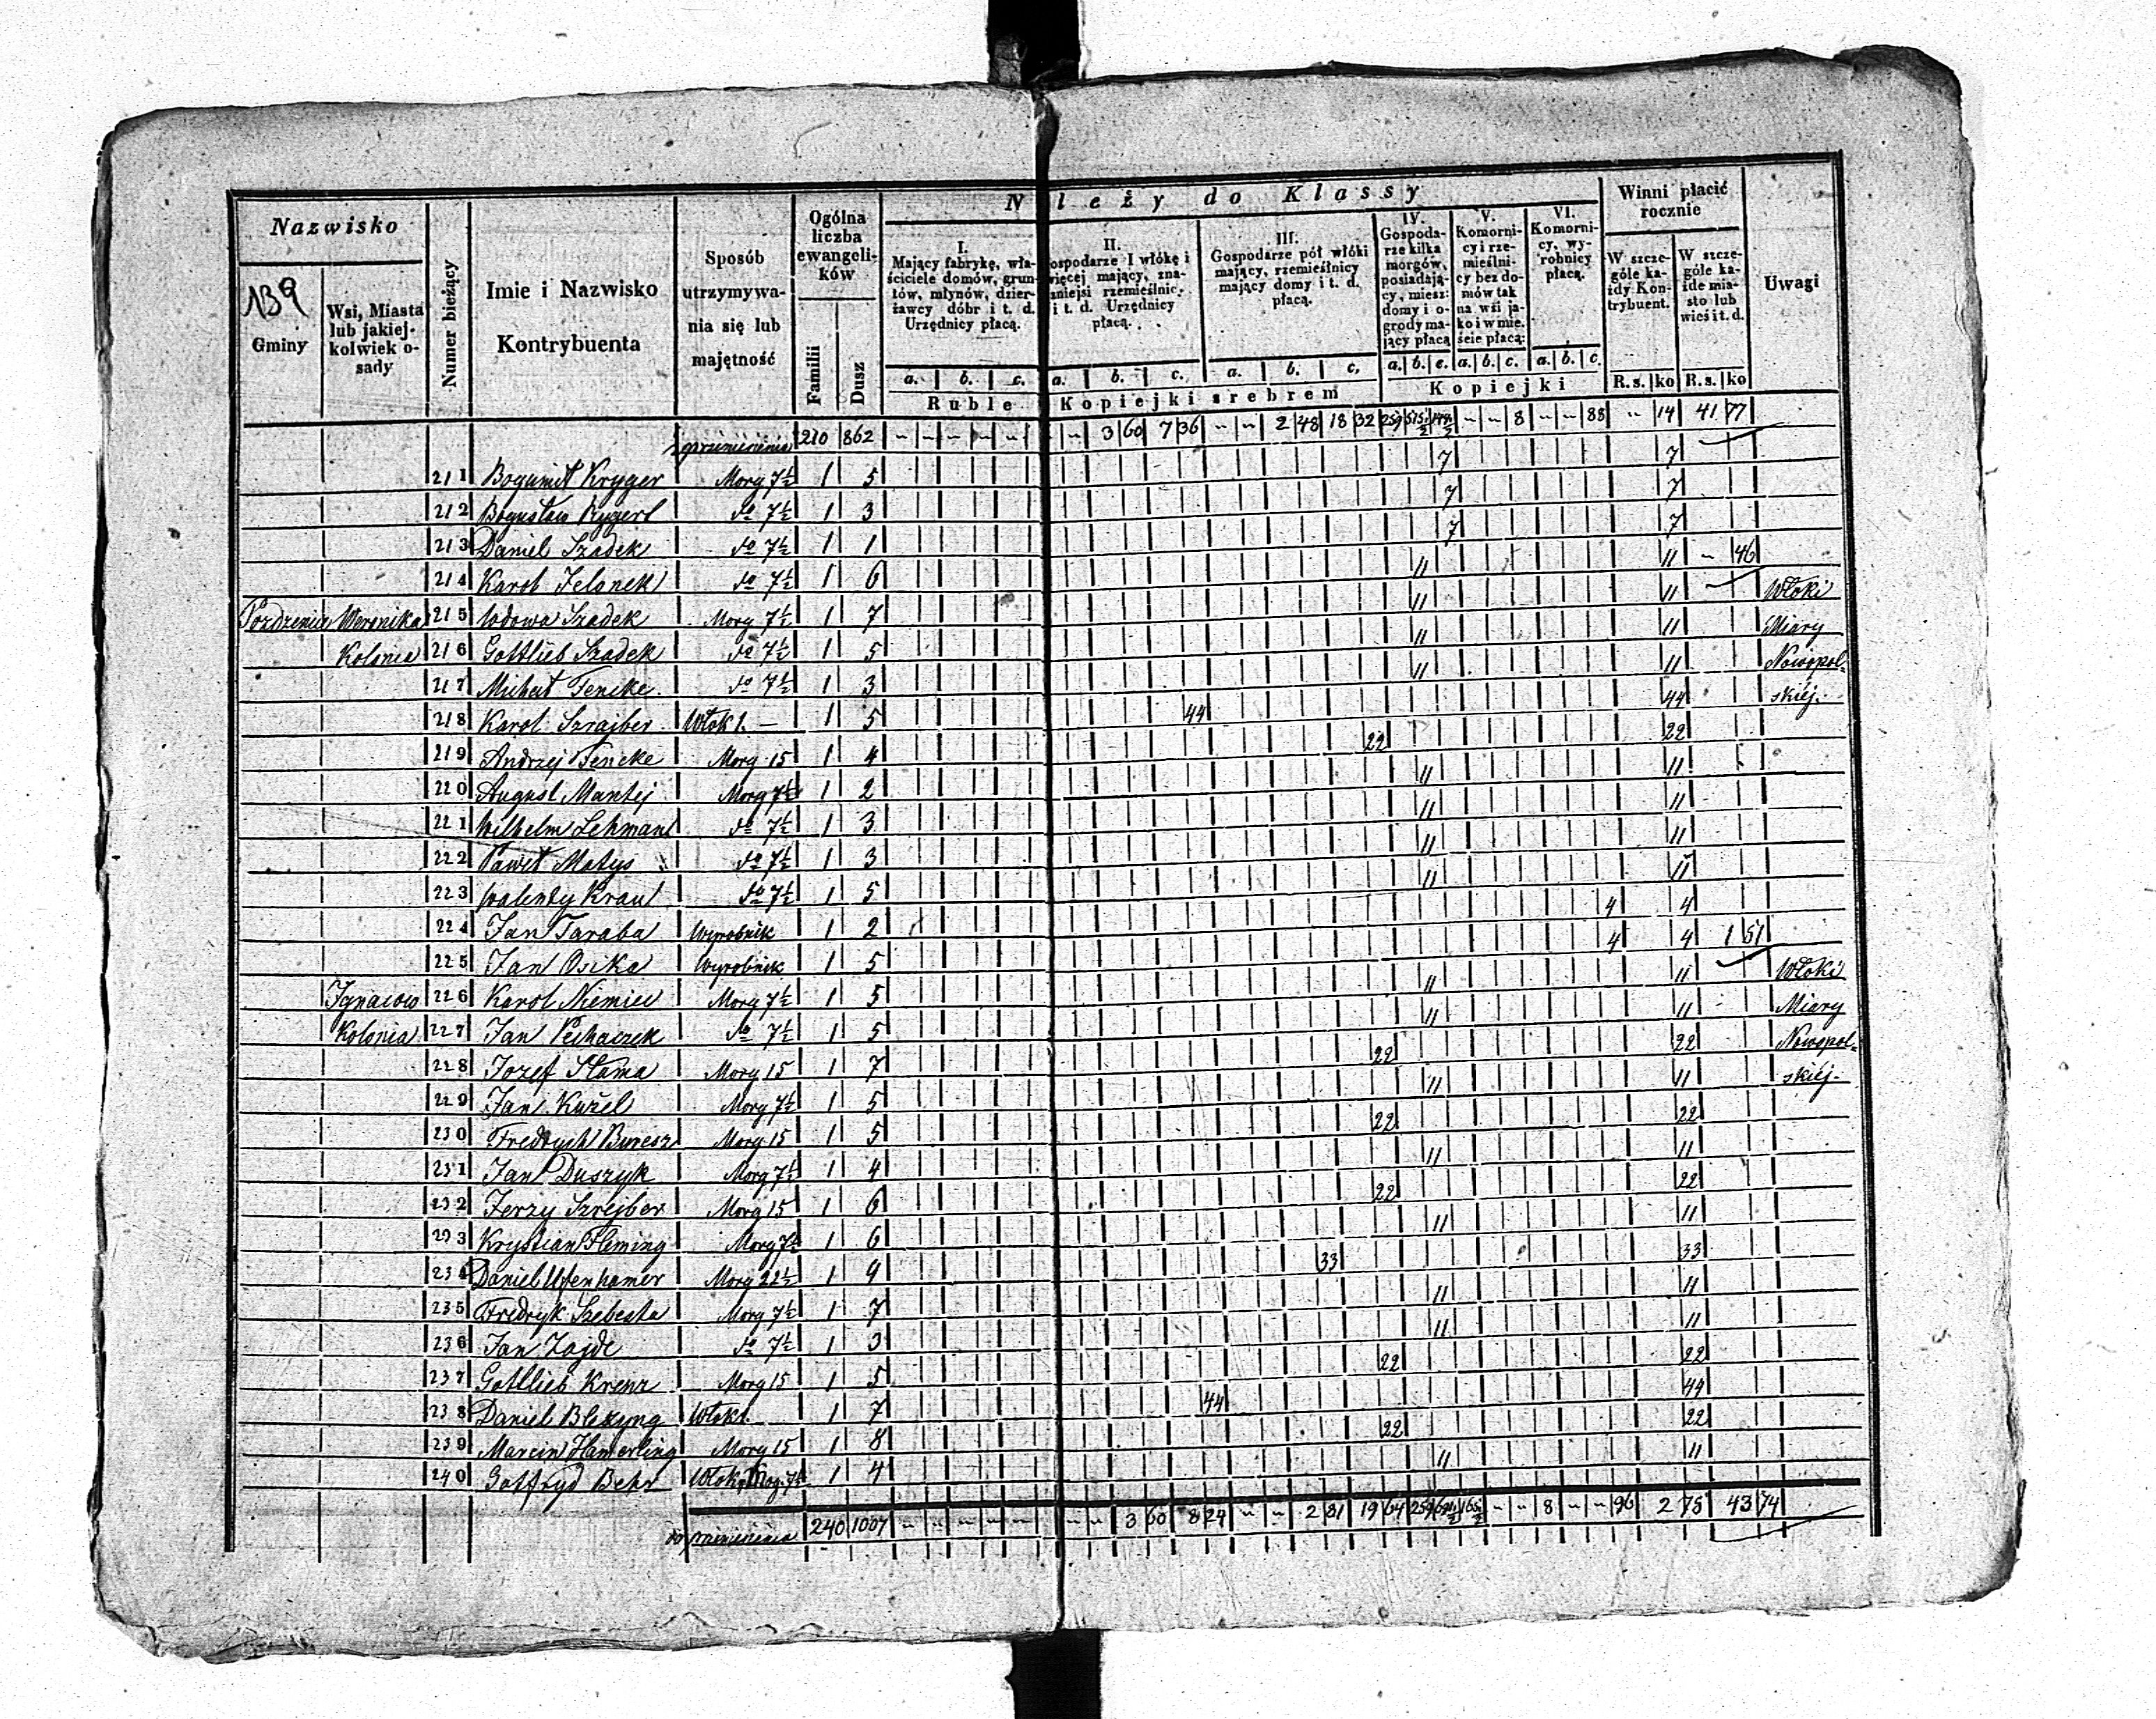 Nazwisko
Należy do Klassy
139
Gminy
Wsi, Miasta lub jakiej- kolwiek o- sady
Numer bieżący
Imie i Nazwisko Kontrybuenta
Sposób utrzymywa- nia się lub majętność
Ogólna liczba ewangeli- ków
Familii
Dusz
I. Mający fabrykę, wła- ściciele domów, grun- tów, młynów, dzier- żawcy dóbr i t. d. Urzędnicy płacą.
II. ospodarze I włókę i więcej mający, zna- zniejsi rzemieślnic. i t. d. Urzędnicy płacą.
III. Gospodarze pół włóki mający, rzemieślnicy mający domy i t. d. płacą.
IV. Gospoda- rze kilka morgów, posiadają- cy, miesz: domy i o- grody ma- jący płacą
V. Komorni- cy i rze- mieślni- cy bez do- mów tak na wsi ja- ko i w mie. ście płacą:
VI. Komorni- cy, wy- robnicy płacą.
Winni płacić rocznie
W szcze- góle ka- żdy Kon- trybuent.
W szcze- góle ka- żde mia- sto lub wieś i t. d.
Uwagi
a. b. c. a. b. c. a. b. c. a. b. c. a. b. c. a. b. c.
Ruble Kopiejki srebrem Kopiejki R.s. ko R.s. ko
z przeniesienia 210 862 3 60 7 36 2 48 18 32 8 88 14 41 77
211 Bogumił Kryger Morg 7½ 1 5 7 7
212 Bogusław Rygert do 7½ 1 3 7 7
213 Daniel Szadek do 7½ 1 1 7 7
214 Karol Jelonek do 7½ 1 6 11 11 - 46
Pozdzenice Weronika 215 Wdowa Szadek Morg 7½ 1 7 11 11 Włóki
Kolonia 216 Gottlieb Szadek do 7½ 1 5 11 11 Miary
217 Michał Fencke do 7½ 1 3 11 11 Nowopol-
218 Karol Szrajber Włók 1. - 1 5 44 44 skiéj.
219 Andrzéj Fencke Morg 15 1 4 22 22
220 August Mantej Morg 7½ 1 2 11 11
221 Wilhelm Lehman do 7½ 1 3 11 11
222 Paweł Matys do 7½ 1 3 11 11
223 Walenty Kraul do 7½ 1 5 11 11
224 Jan Taraba Wyrobnik 1 2 4 4
225 Jan Osika Wyrobnik 1 5 4 4 1 51
Ignacow 226 Karol Niemiec Morg 7½ 1 5 11 11 Włóki
Kolonia 227 Jan Pechaczek do 7½ 1 5 11 11 Miary
228 Jozef Slama Morg 15 1 7 22 22 Nowopol-
229 Jan Kużel Morg 7½ 1 5 11 11 skiéj.
230 Fredrych Buresz Morg 15 1 5 22 22
231 Jan Duszyk Morg 7½ 1 4 11 11
232 Jerzy Szrejber Morg 15 1 6 22 22
233 Krystian Fleming Morg 7½ 1 6 11 11
234 Daniel Ufenhamer Morg 22½ 1 9 33 33
235 Fredryk Szebesta Morg 7½ 1 7 11 11
236 Jan Zajde do 7½ 1 3 11 11
237 Gottlieb Krenz Morg 15 1 5 22 22
238 Daniel Bleszyng Włók 1. 1 7 44 44
239 Marcin Hamerling Morg 15 1 8 22 22
240 Gotfryd Behr Włok Morg 7½ 1 4 11 11
do przeniesienia 240 1007 3 60 8 24 2 81 19 64 8 96 2 75 43 74